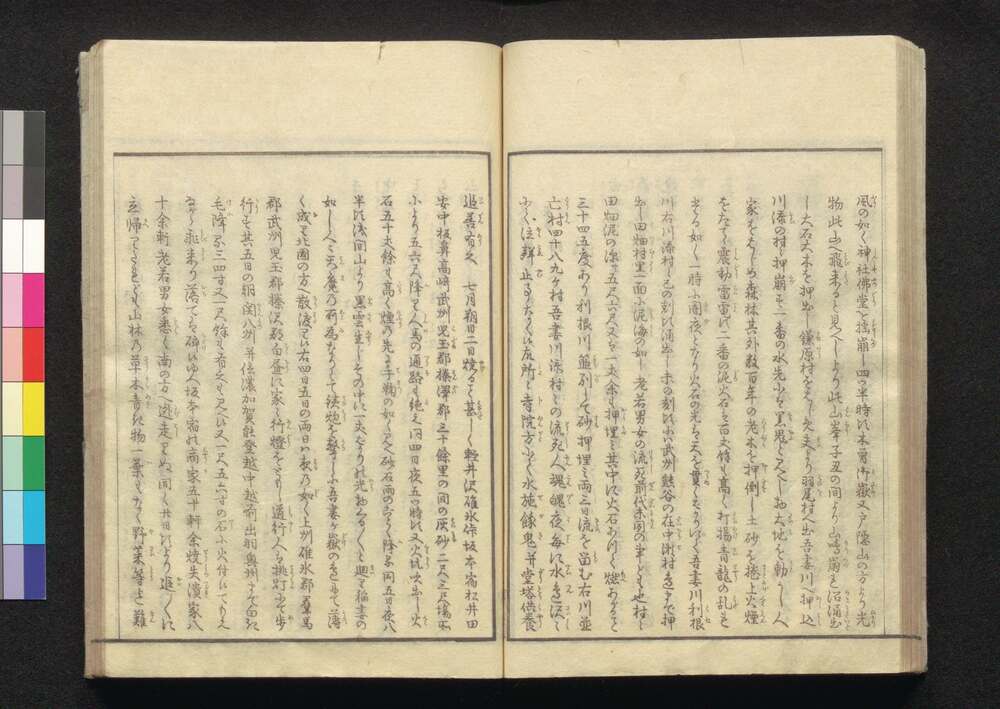 風の如く神社佛堂を捻崩し四ッ半時に木曽御嶽又戸隠山の方より光
物此山へ飛来ると見へしより此山峯子丑の間より山鳴崩れ沼涌出
し大石大木を押出し鎌原村をはじめ夫より羽尾村へ出吾妻川へ押込
川添の村々押崩し一番の水先に黒鬼と見へし物大地を動し人
家をはじめ森林其外数百年の老木を押倒し土砂を捲上火煙
をたて震動雷電し二番の泥火石を百丈余も高く打揚青龍の乱も
出る如し一時に闇夜となり火石の光天を貫くばかり吾妻川利根
川右川添村々巳の刻に涌出し未の刻に武州熊谷の在中瀬村まで押
出し田畑村里一面に泥海の如し老若男女の流死前代未聞の事ども也村々
田畑泥の深さ五尺六尺又は一丈余も押埋其中に火石ありて燃あがること
三十四五度あり利根川筋別して砂押埋み両三日流を留む右川並
亡村四十八九ヶ村吾妻川添村々の流死人魂魄夜毎に水を汲
泣群止まざるに依所々寺院方にて水施餓鬼并堂塔供養
追善有之 七月朔日二日焼る事甚し軽井沢碓氷峠坂本宿松井田
安中板鼻高崎武州児玉郡榛澤郡三十余里の間の灰砂二尺三尺場所
により五六尺降り人馬の通路も絶へ同四日夜五ッ時に又火坑吹出し火
石五千丈余も高く煙の先に手鞠の如く見へ砂石雨のごとく降る同五日夜八ッ
半に浅間山より黒雲生しその中に一丈ばかりの光物くるくと廻り稲妻の
如し人々天魔の所為なりとて鉄炮を撃しに吾妻ヶ嶽のきわにて薄
く成り北國の方へ散渡り右四日五日の両日は夜の如く上州碓氷郡羣馬
郡武州児玉郡榛沢郡白昼に家々行燈をともし通行人は挑灯にて歩
行す其五日の朝関八州并信濃加賀能登越中越前出羽奥州まで白き
毛降る三四寸又一尺余も有之も見へ又一尺五六寸の石に火付てもへ
ながら飛来り落てくだけゆへ坂本宿の商家五十軒余焼失潰家八
十余軒老若男女悉く南の方へ逃走りぬ同く廿日比より追々に
立帰りけれども山林の草木青き物一葉もなく野菜等も難